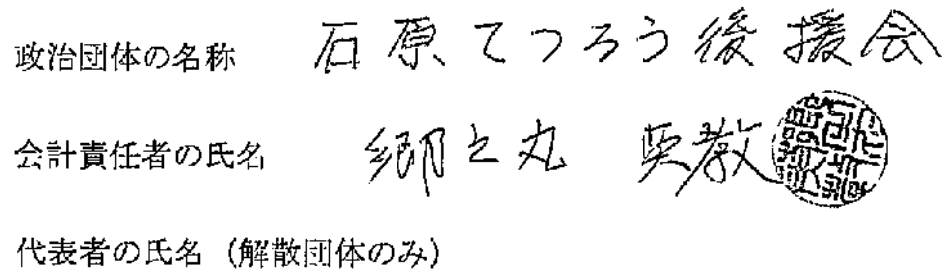 政治団体の名称 石原てつろう後援会
会計責任者の氏名 郷之丸 英教
代表者の氏名 (解散団体のみ)